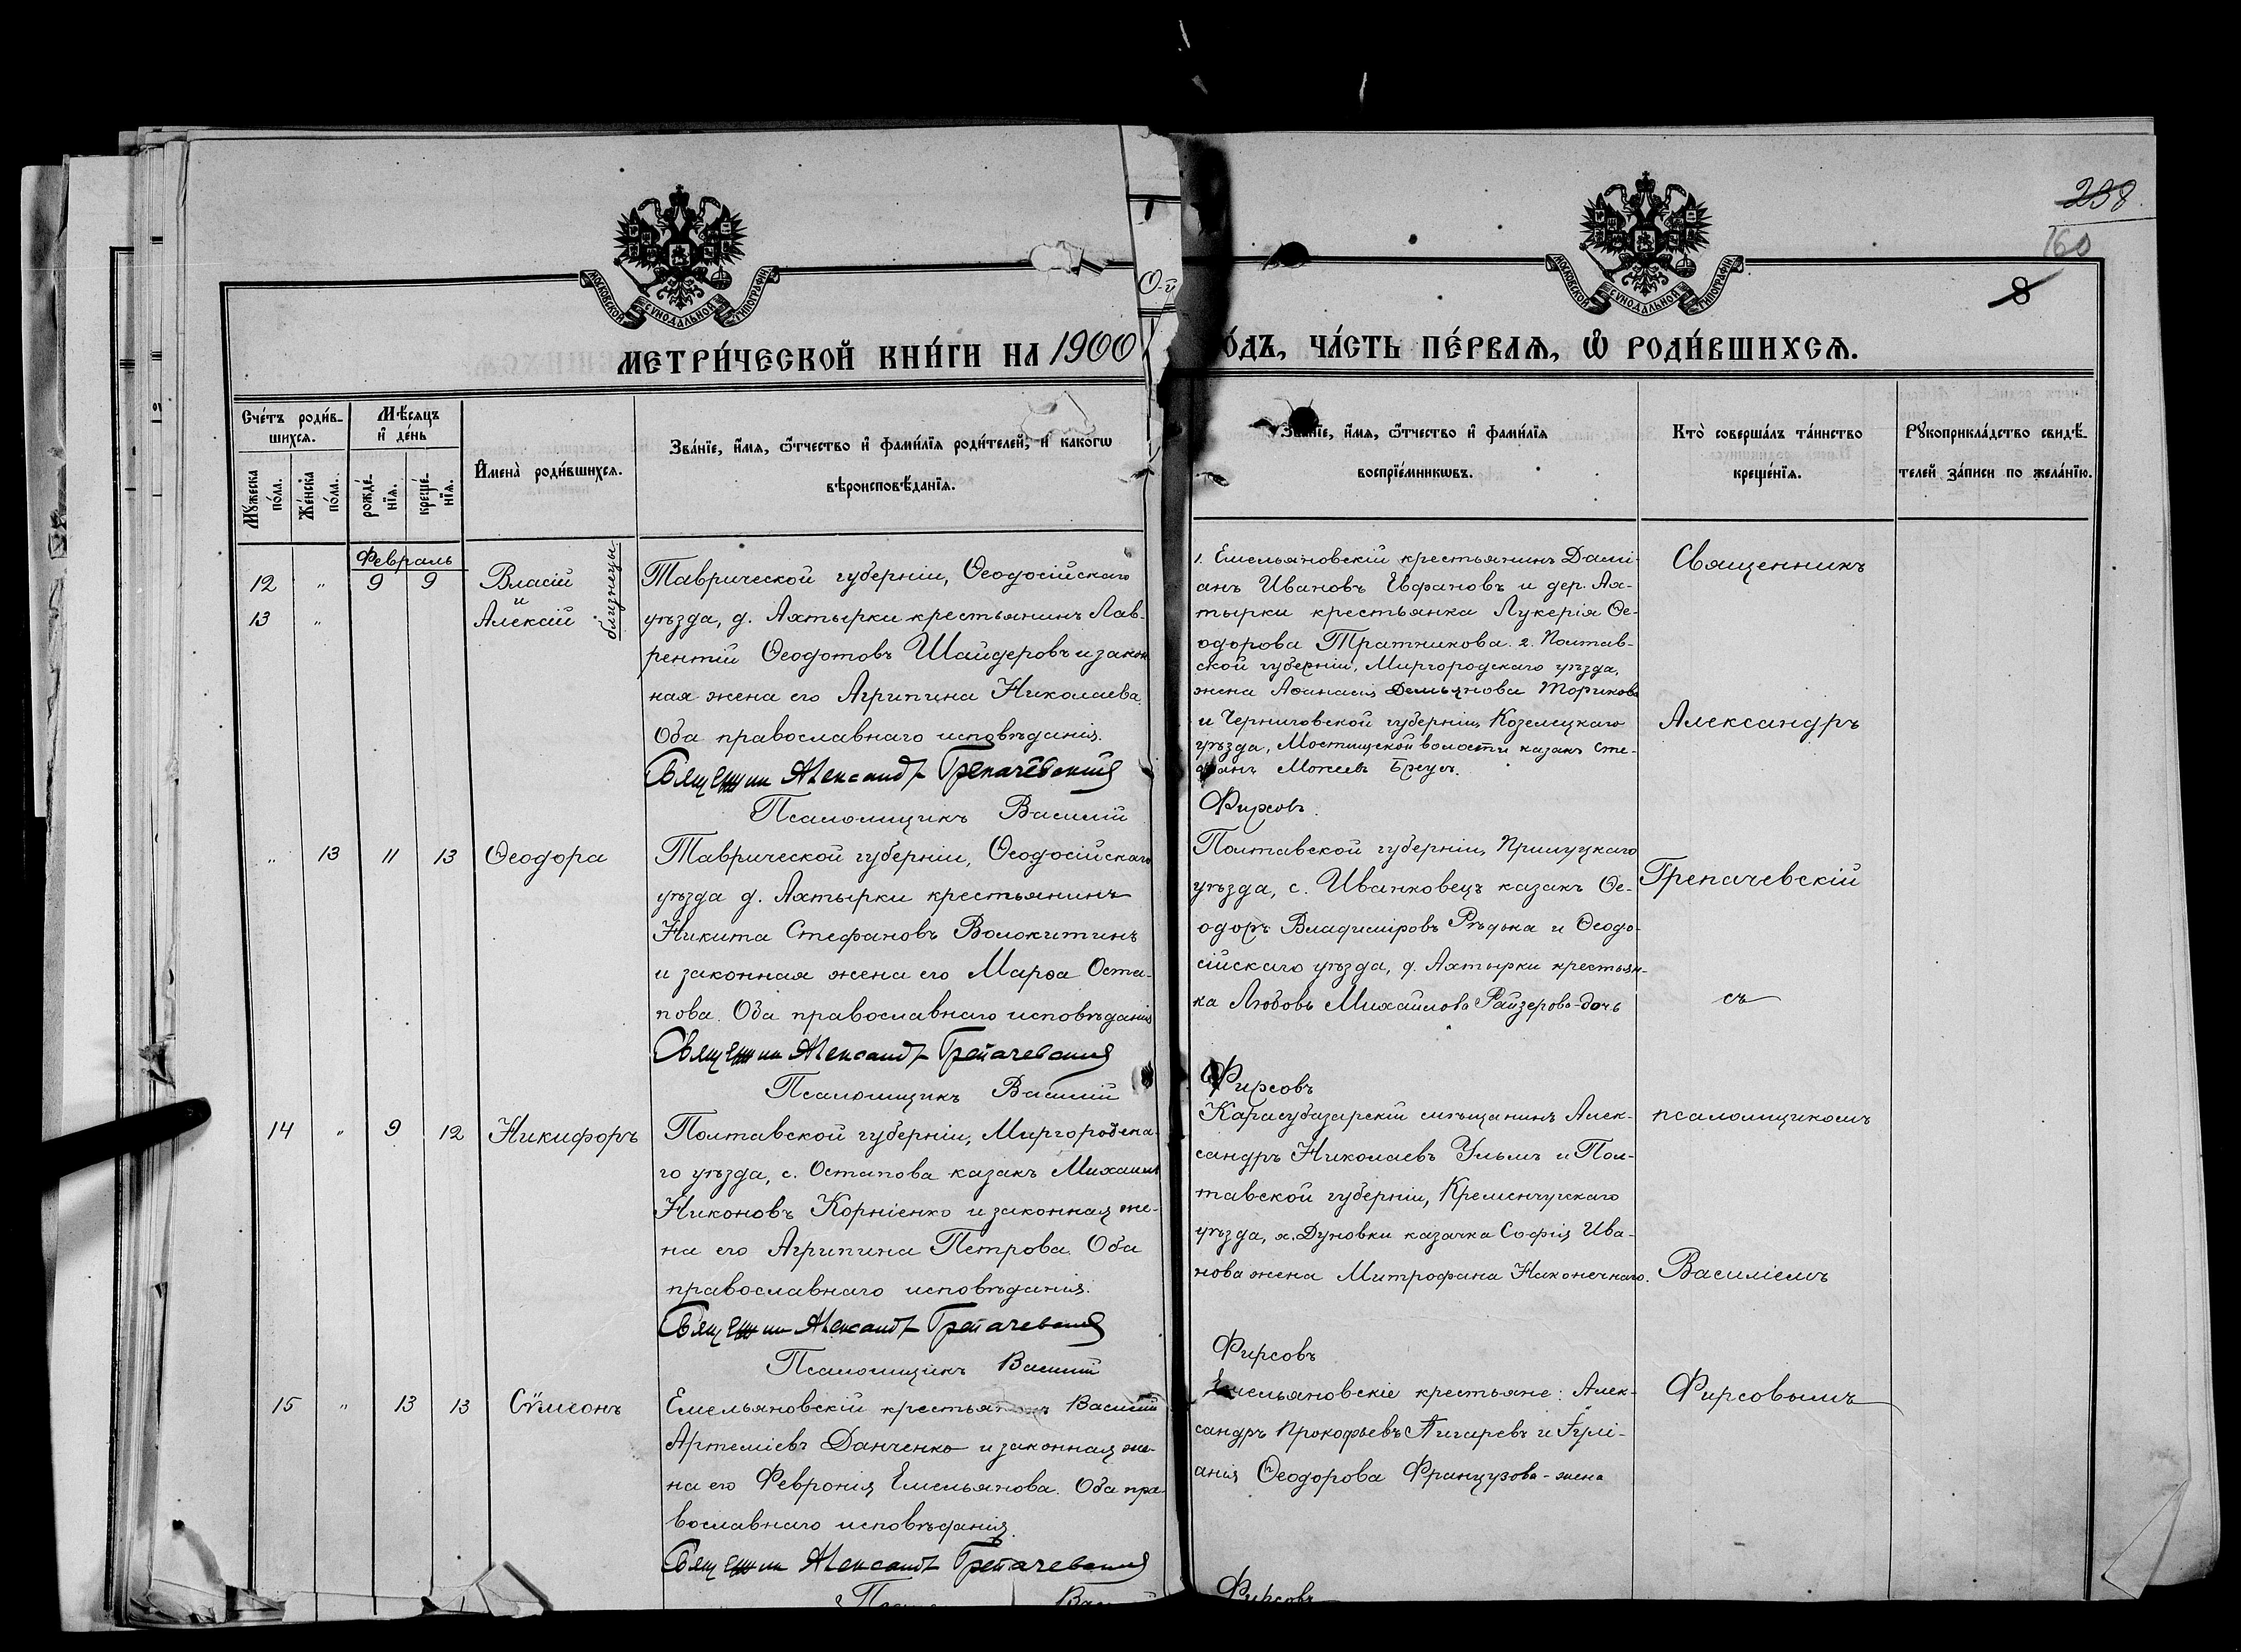 238
160
8
МОСКОВСКОЙ СУНОДАЛЬНОЙ ТИПОГРАФІИ
МОСКОВСКОЙ СУНОДАЛЬНОЙ ТИПОГРАФІИ
О-й
МЕТРИ́ЧЕСКОЙ КНИ́ГИ НА 1900
О́ДЪ, ЧА́СТЬ ПЕ́РВАѦ, Ѡ РОДИ́ВШИХСѦ.
Сче́тъ роди́в-
шихсѧ.
Мꙋжеска по́ла.
Же́нска по́ла.
Мѣ́сѧцъ
и҆ де́нь
рожде́-
нїѧ.
креще́-
нїѧ.
И҆мена̀ роди́вшихсѧ.
Зва́нїе, и҆́мѧ, ѻ҆́тчество и҆ фами́лїѧ роди́телей, и҆ какогѡ
вѣроисповѣ́данїѧ.
Зва́нїе, и҆́мѧ, ѻ҆́тчество и҆ фами́лїѧ
воспрїе́мникѡвъ.
Кто̀ соверша́лъ та́инство
креще́нїѧ.
Рꙋкоприкла́дство свидѣ́-
телей за́писи по жела́нїю.
Февраль
12 " 9 9 Власій
и
13 " Алексій
близнецы
Таврической губерніи, Ѳеодосійскаго
уѣзда, д. Ахтырки крестьянинъ Лав-
рентій Ѳеодотовъ Шайдеровъ и закон
ная жена его Агрипина Николаева.
Оба православнаго исповѣданія.
Священник Александръ Грепачевскій
Псаломщикъ Василій
1. Емельяновскій крестьянинъ Дамі-
анъ Ивановъ Евфановъ и дер. Ах-
тырки крестьянка Лукерія Ѳе-
одорова Тратникова. 2. Полтав-
ской губерніи, Миргородскаго уѣзда,
жена Аѳанасія Демьянова
и Черниговской губерніи, Козелецкаго
уѣзда, Мостищской волости казакъ Сте-
фанъ Моисеевъ
Фирсовъ.
" 13 11 13 Ѳеодора
Таврической губерніи, Ѳеодосійскаго
уѣзда д. Ахтырки крестьянинъ
Никита Стефановъ Волокитинъ
и законная жена его Марѳа Оста-
пова. Оба православнаго исповѣданія
Священник Александръ Грепачевскій
Псаломщикъ Василій
Полтавской губерніи, Прилуцкаго
уѣзда, с. Иванковецъ казакъ Ѳе-
одоръ Владиміровъ Рѣдька и Ѳеодо-
сійскаго уѣзда, д. Ахтырки крестьян-
ка Любовь Михайлова Райзерова-дочь
Фирсовъ
14 " 9 12 Никифоръ
Полтавской губерніи, Миргородска-
го уѣзда, с. Остапова казакъ Михаилъ
Никоновъ Корніенко и законная же-
на его Агрипина Петрова. Оба
православнаго исповѣданія.
Священник Александръ Грепачевскій
Псаломщикъ Василій
Карасубазарскій мѣщанинъ Алек-
сандръ Николаевъ Ульмъ и Пол-
тавской губерніи, Кременчугскаго
уѣзда, х. Дуновки казачка Софія Ива-
нова жена Митрофана Наконечнаго.
Фирсовъ
15 " 13 13 Сѵмеонъ
Емельяновскій крестьянинъ Василій
Артеміевъ Данченко и законная же-
на его Февронія Емельянова. Оба пра-
вославнаго исповѣданія.
Священник Александръ Грепачевскій
Емельяновскіе крестьяне: Алек-
сандръ Прокофьевъ Пигаревъ и Іулі-
анія Ѳеодорова Французова-жена
Фирсовъ
Священникъ
Александръ
Грепачевскій
съ
псаломщикомъ
Василіемъ
Фирсовымъ